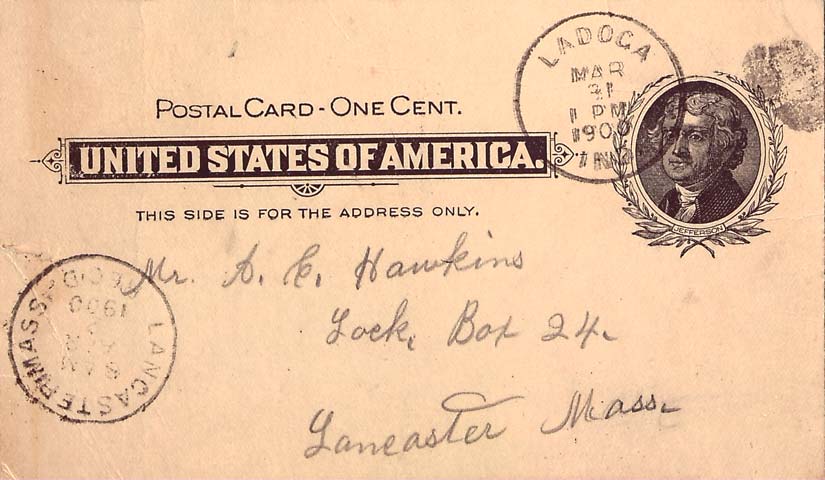 LADOGA
MAR
31
1 PM
1900
IND
POSTAL CARD - ONE CENT.
UNITED STATES OF AMERICA.
JEFFERSON
THIS SIDE IS FOR THE ADDRESS ONLY.
Mr. A. E. Hawkins
Lock, Box 24.
Lancaster Mass.
LANCASTER, MASS.
REC'D.
1900
8 AM